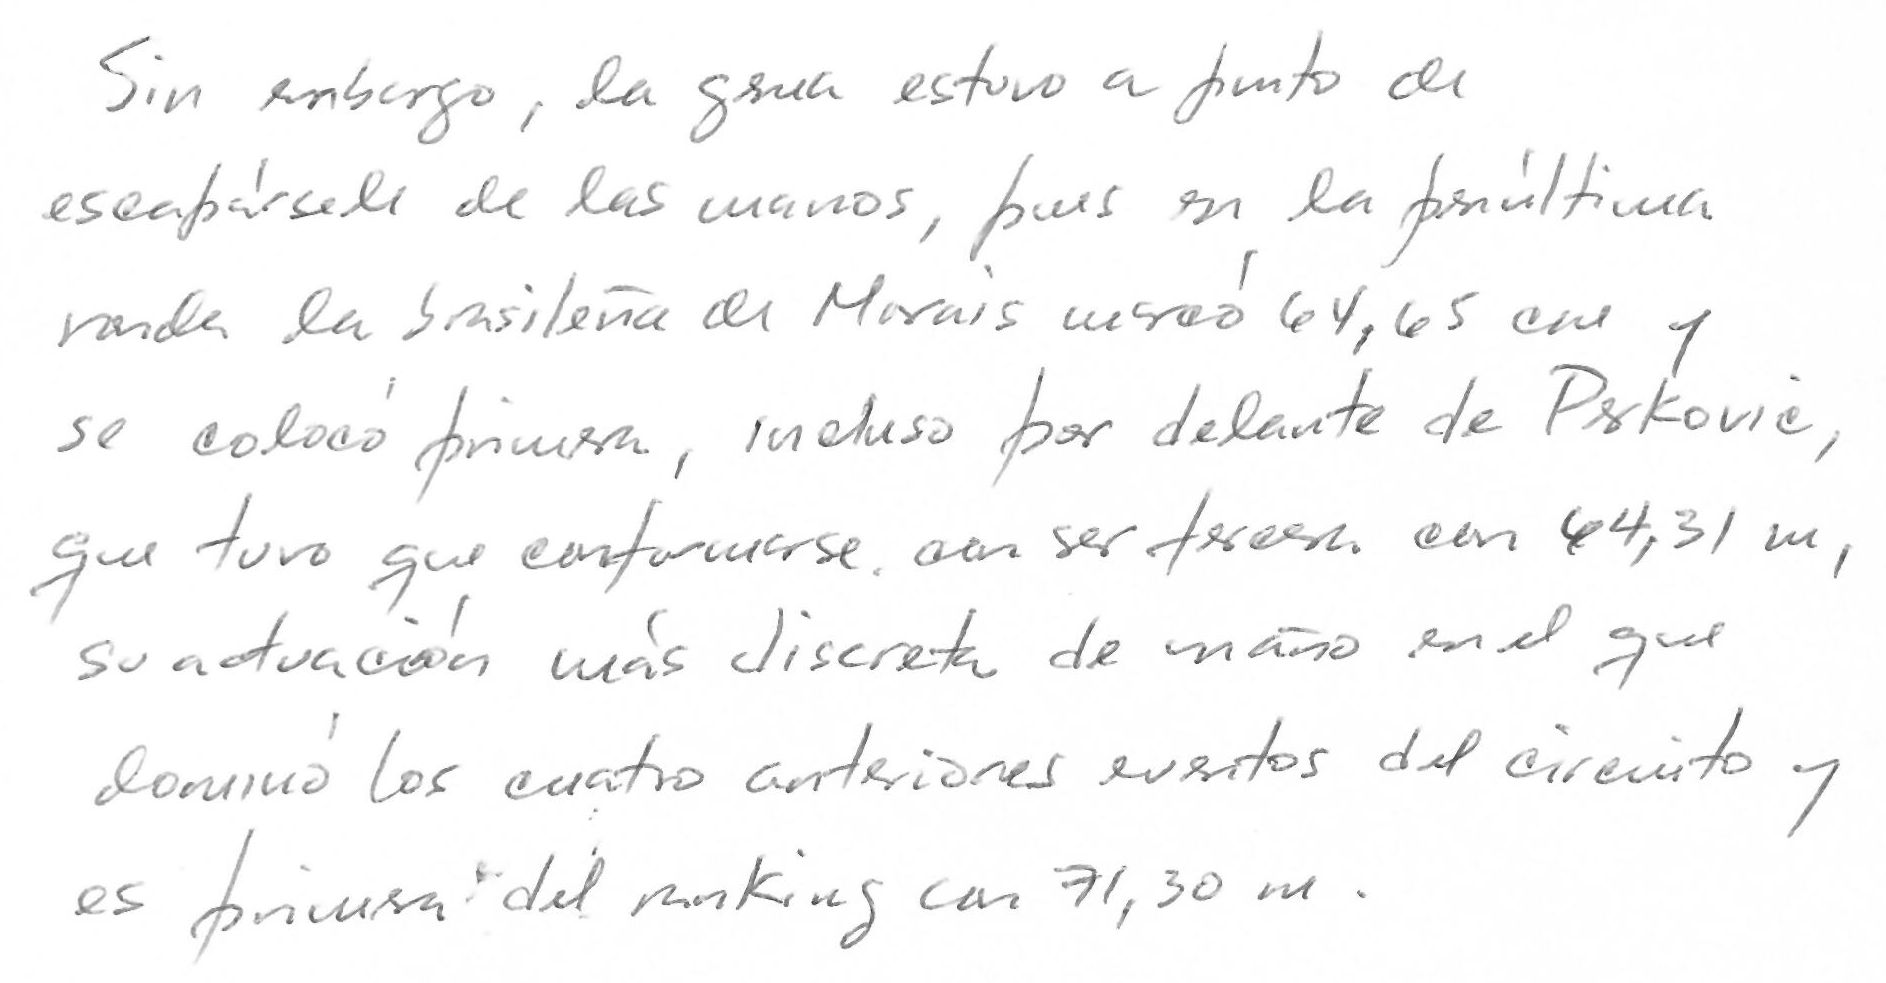 Sin embargo, la gema estuvo a punto de
escapársele de las manos, pues en la penúltima
ronda la brasileña de Morais marcó 64,65 cm y
se colocó primera, incluso por delante de Perkovic,
que tuvo que conformarse con ser tercera con 64,31 m,
su actuación más discreta de un año en el que
dominó los cuatro anteriores eventos del circuito y
es primera del ranking con 71,30 m.